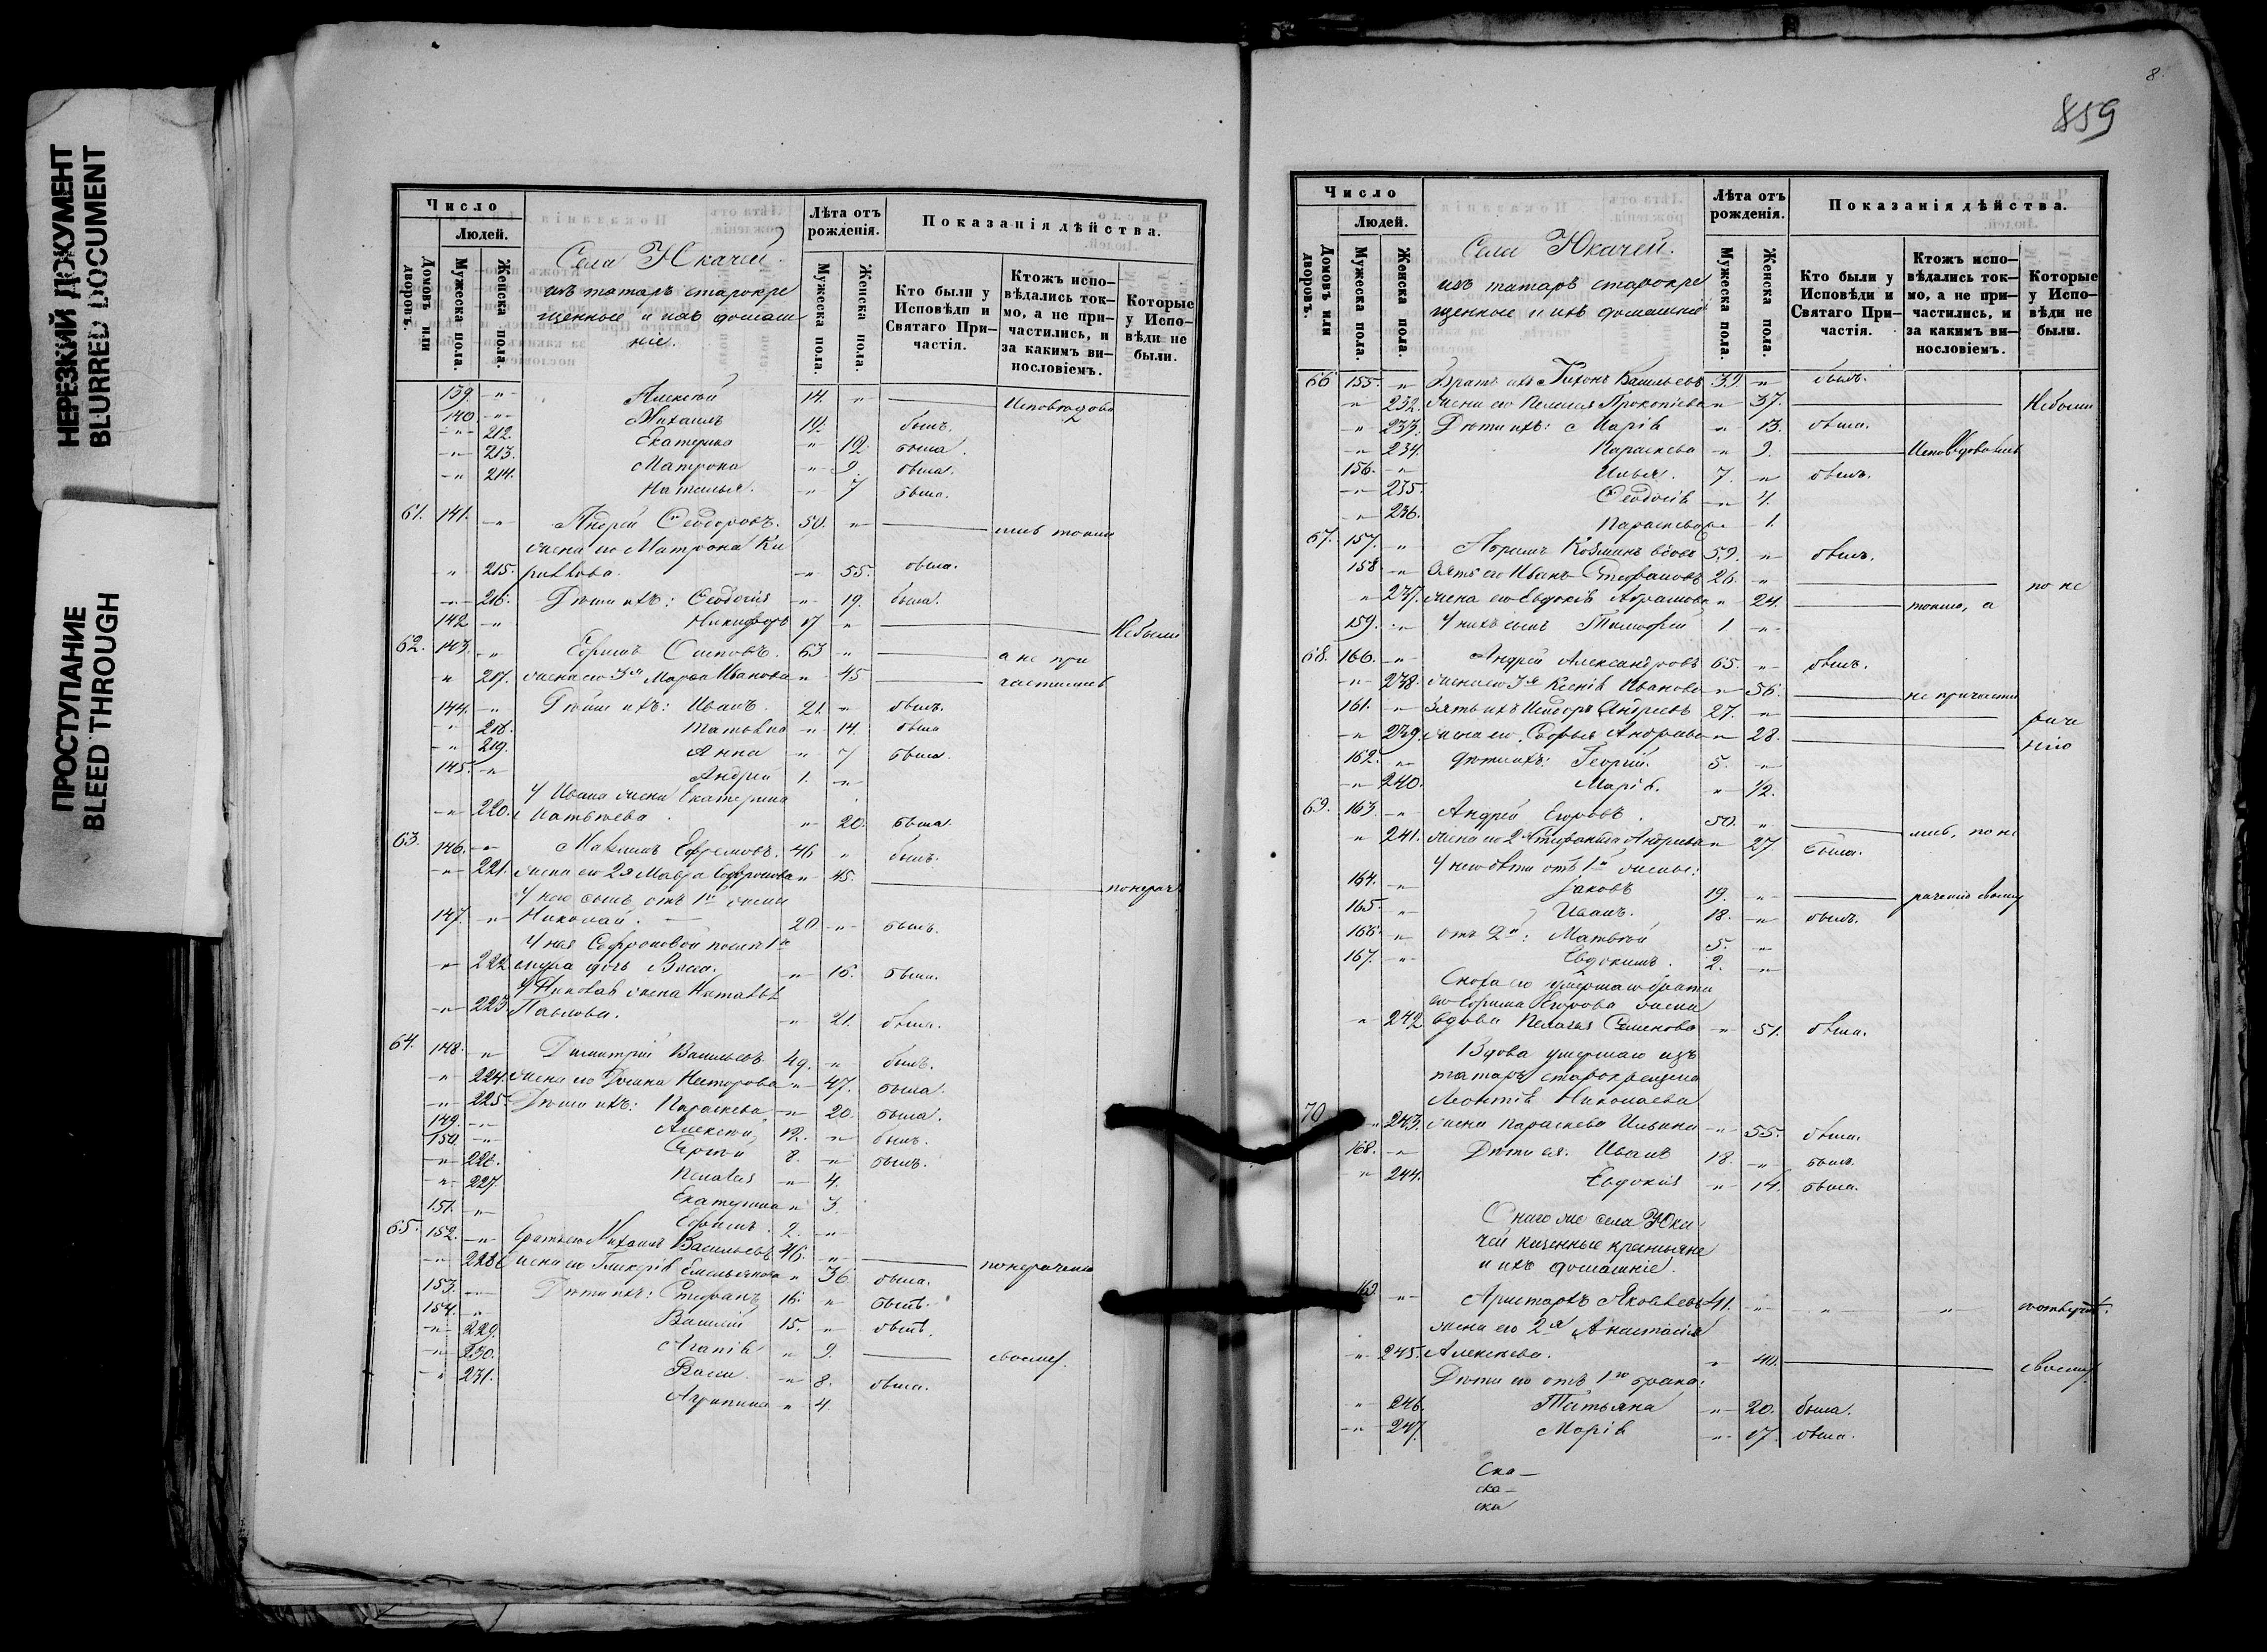 НЕРЕЗКИЙ ДОКУМЕНТ
BLURRED DOCUMENT
ПРОСТУПАНИЕ
BLEED THROUGH
Число
Людей.
Домовъ или дворовъ.
Мужеска пола.
Женска пола.
Села Юкачей.
изъ татаръ старокре
щенные и ихъ домаш
ніе.
Лѣта отъ рожденія.
Мужеска пола.
Женска пола.
Показанія дѣйства.
Кто были у Исповѣди и Святаго При-частія.
Ктожъ испо-вѣдались ток-мо, а не при-частились, и за какимъ ви-нословіемъ.
Которые у Испо-вѣди не были.
139. -"- Алексѣй 14. " Исповѣдова
140. -"- Михаилъ 10. былъ.
-"- 212. Екатерина " 12. была.
-"- 213. Матрона -"- 9. была.
-"- 214. Наталья. -"- 7 была.
61. 141. -"- Андрей Ѳеодоровъ. 50. " лись токмо
жена его Матрона Ки
" 215. риллова. -"- 55. была.
-"- 216. Дѣти ихъ: Ѳеодосія -"- 19. была.
142 -"- Никифоръ 17 " Небыли
62. 143. -"- Ефремъ Осиповъ. 63 " а не при
" 217. жена его 3я Марѳа Иванова " 45 частились
144. -"- Дѣти ихъ: Иванъ. 21. " былъ.
" 218. Татьяна " 14. была
-"- 219. Анна " 7 была
145. -"- Андрей 1. -"-
У Ивана жена Екатерина
-"- 220. Матвѣева -"- 20. была.
63. 146. -"- Максимъ Ефремовъ. 46 " былъ.
-"- 221. жена его 2я Мавра Софронова " 45. понерач
У него сынъ отъ 1й жены
147. " Николай. 20 -"- былъ.
У нея Софроновой
" 222. дочь Васса. -"- 16. была.
У Николая жена Наталья
-"- 223. Павлова. -"- 21. была.
64. 148. " Димитрій Васильевъ 49. -"- былъ.
" 224. жена его Нестерова " 47. была.
-"- 225. Дѣти ихъ: Параскева -"- 20. была.
149. -"- Алексѣй 12. " былъ.
150. -"- Сергѣй 8. " былъ.
-"- 226. Пелагея -"- 4.
-"- 227. Екатерина " 3.
151. -"- Ефимъ. 2. -"-
65. 152. -"- Братъ его Михаилъ Васильевъ 46. " понерачен
-"- 228. жена его Гликерія Емельянова " 36. была.
153. -"- Дѣти ихъ: Стефанъ 16. " былъ.
154. " Василій 15. " былъ.
-"- 229. Агапія " 9. своему.
-"- 230. Васса. -"- 8. была.
" 231. Агрипина " 4.
8.
859
Число
Людей.
Домовъ или дворовъ.
Мужеска пола.
Женска пола.
Села Юкачей.
изъ татаръ старокре
щенные и ихъ домашніе
Лѣта отъ рожденія.
Мужеска пола.
Женска пола.
Показанія дѣйства.
Кто были у Исповѣди и Святаго При-частія.
Ктожъ испо-вѣдались ток-мо, а не при-частились, и за какимъ ви-нословіемъ.
Которые у Испо-вѣди не были.
66 155. " Братъ ихъ Тихонъ Васильевъ 39. " былъ.
" 232. жена его Пелагея Прокопіева " 37. Небыли
" 233. Дѣти ихъ: Марія " 13. была.
-"- 234. Параскева " 9. Исповѣдовались
156. -"- Илья. 7. " былъ.
-"- 235. Ѳеодосія -"- 4.
-"- 236. Параскева " 1.
67. 157. " Абрамъ Козминъ вдовъ 59. " былъ.
158. -"- Зять его Иванъ Стефановъ 26. " по не
" 237. жена его Евдокія Абрамова " 24. токмо, а
159. -"- У нихъ сынъ Тимоѳей 1 -"-
68. 160. -"- Андрей Александровъ 65. " былъ.
-"- 238. жена его 3я Ксенія Иванова " 56. не причасти
161. -"- Зять ихъ Исидоръ Андреевъ 27. " раче
-"- 239. жена его Софья Андреева " 28. нію
162. -"- Дѣти ихъ: Георгій. 5. "
-"- 240. Марія. " 1/2.
69. 163. -"- Андрей Егоровъ. 50. " лись, по не
" 241. жена его 2я Степанида Андреева " 27. была.
У него дѣти отъ 1й жены:
164. -"- Іаковъ 19. " рачению своему
165. -"- Иванъ. 18. -"- былъ.
166. -"- отъ 2й: Матвѣй 5. -"-
167. -"- Евдокимъ. 2. -"-
Сноха его умершаго брата
его Ефрема Егорова жена
" 242 вдова Пелагея Семенова -"- 51. была.
Вдова умершаго изъ
татаръ старокрещена
Леонтія Николаева
70 " 243. жена Параскева Ильина -"- 55. была.
168. -"- Дѣти ея: Иванъ 18. " былъ.
" 244. Евдокія -"- 14. была.
Онаго же села Юка
чей казенные крестьяне
и ихъ домашніе.
169 -"- Аристархъ Яковлевъ 41. -"- " "
жена его 2я Анастасія
" 245. Алексѣева. " 40. своему
Дѣти его отъ 1го брака:
" 246. Татьяна -"- 20. была.
-"- 247. Марія -"- 17. была.
Ска-
ска-
ски